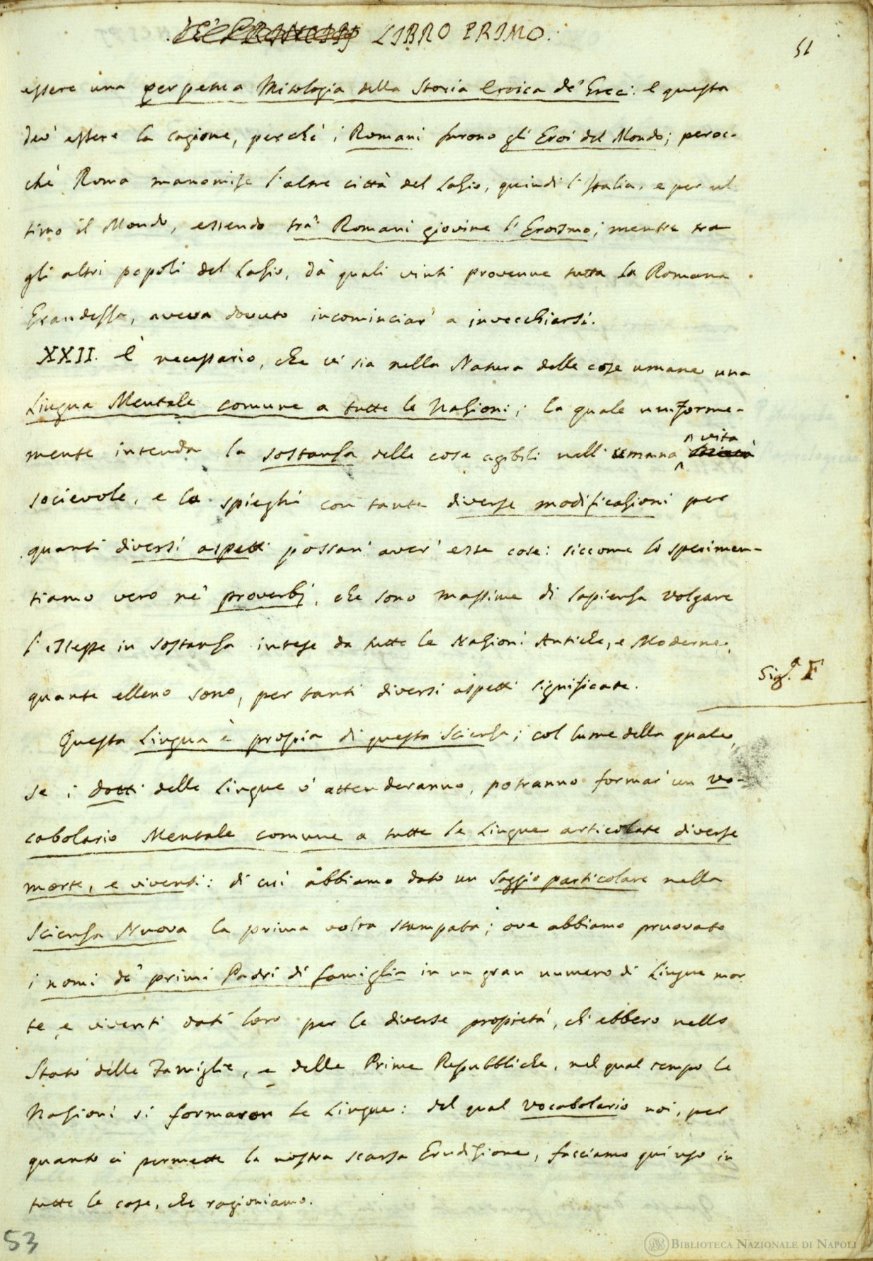 DE' PRINCIPJ LIBRO PRIMO.
51
essere una perpetua Mitologia della Storia Eroica de' Greci: e questa
dev' essere la cagione, perchè i Romani furono gli Eroi del Mondo; peroc-
chè Roma manomise l'altre città del Lazio, quindi l'Italia, e per ul
timo il Mondo, essendo tra' Romani giovine l'Eroismo; mentre tra
gli altri popoli del Lazio, da' quali vinti provenne tutta la Romana
Grandezza, aveva dovuto incominciar' a invecchiarsi.
XXII. E' necessario, che vi sia nella Natura delle cose umane una
Lingua Mentale comune a tutte le Nazioni; la quale uniforme-
mente intenda la sostanza delle cose agibili nell'umana vita
socievole, e la spieghi con tante diverse modificazioni per
quanti diversi aspetti possan' aver' esse cose: siccome lo sperimen-
tiamo vero ne' proverbj, che sono massime di sapienza volgare
l'istesse in sostanza intese da tutte le Nazioni Antiche, e Moderne,
quante elleno sono, per tanti diversi aspetti significate.
Sig.ª F
Questa Lingua è propia di questa Scienza; col lume della quale,
se i dotti delle Lingue v' attenderanno, potranno formar' un vo-
cabolario Mentale comune a tutte le Lingue articolate diverse
morte, e viventi: di cui abbiamo dato un saggio particolare nella
Scienza Nuova la prima volta stampata; ove abbiamo pruovato
i nomi de' primi Padri di famiglia in un gran numero di Lingue mor
te, e viventi dati loro per le diverse propietà, ch' ebbero nello
Stato delle Famiglie, e delle Prime Repubbliche, nel qual tempo le
Nazioni si formaron le Lingue: del qual vocabolario noi, per
quanto ci permette la nostra scarsa Erudizione, facciamo qui uso in
tutte le cose, che ragioniamo.
53
BIBLIOTECA NAZIONALE DI NAPOLI